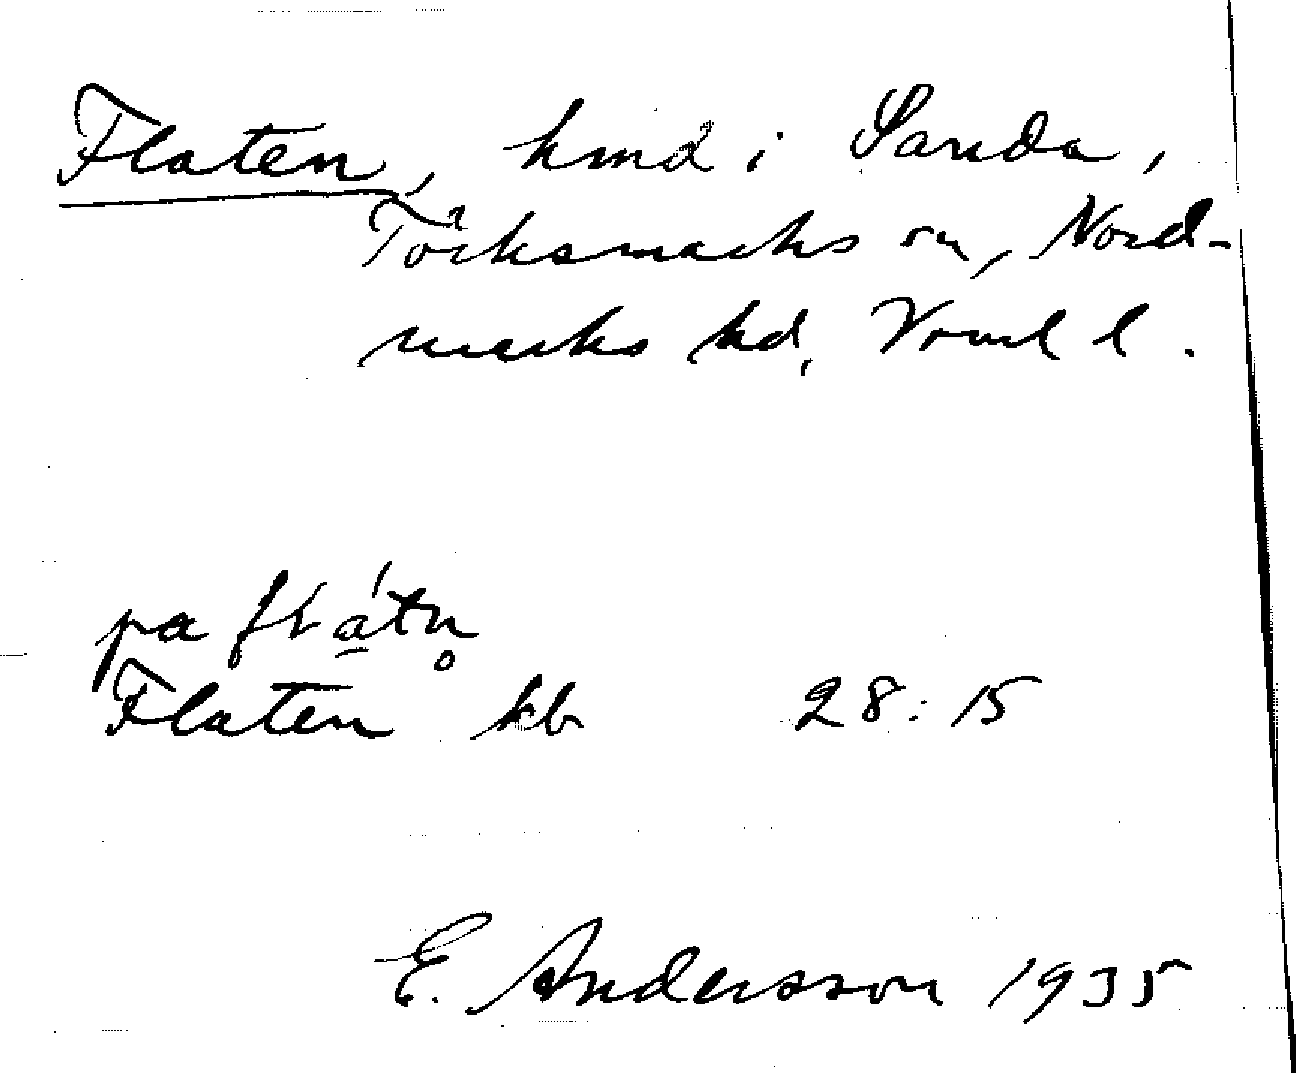 Flaten, hmd i Sanda,
Töcksmarks sn, Nord-
marks hd, Vrml l.
pa
Flaten kb 28:15
E. Andersson 1935